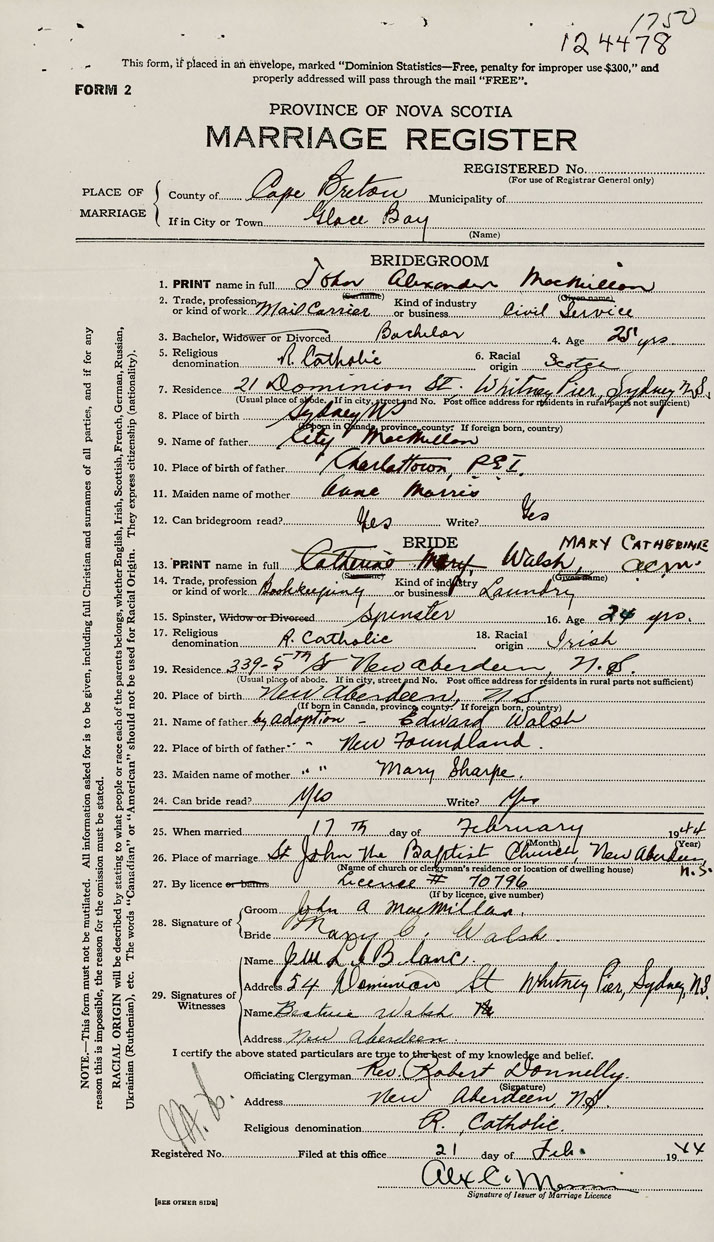 1750
124478
This form, if placed in an envelope, marked "Dominion Statistics—Free, penalty for improper use $300," and
properly addressed will pass through the mail "FREE".
FORM 2
PROVINCE OF NOVA SCOTIA
MARRIAGE REGISTER
REGISTERED No.
(For use of Registrar General only)
PLACE OF MARRIAGE
County of Cape Breton Municipality of
If in City or Town Glace Bay
(Name)
BRIDEGROOM
1. PRINT name in full John Alexander MacMillan
(Surname) (Given name)
2. Trade, profession or kind of work Mail Carrier Kind of industry or business Civil Service
3. Bachelor, Widower or Divorced Bachelor 4. Age 25 yrs.
5. Religious denomination R. Catholic 6. Racial origin Scotch
7. Residence 21 Dominion St. Whitney Pier, Sydney N.S.
(Usual place of abode. If in city, street and No. Post office address for residents in rural parts not sufficient)
8. Place of birth Sydney NS
(If born in Canada, province, county. If foreign born, country)
9. Name of father MacMillan
10. Place of birth of father Charlottown, P.E.I.
11. Maiden name of mother Anne Morris
12. Can bridegroom read? Yes Write? Yes
BRIDE MARY CATHERINE
13. PRINT name in full Catherine Mary Walsh, acm.
(Surname) (Given name)
14. Trade, profession or kind of work Bookkeeping Kind of industry or business Laundry
15. Spinster, Widow or Divorced Spinster 16. Age 24 yrs.
17. Religious denomination R. Catholic 18. Racial origin Irish
19. Residence 339-5th St New Aberdeen, N.S.
(Usual place of abode. If in city, street and No. Post office address for residents in rural parts not sufficient)
20. Place of birth New Aberdeen, N.S.
(If born in Canada, province, county. If foreign born, country)
21. Name of father by adoption - Edward Walsh
22. Place of birth of father " " New Foundland.
23. Maiden name of mother " " Mary Sharpe.
24. Can bride read? Yes Write? Yes
25. When married 17th day of February 1944
(Month) (Year)
26. Place of marriage St John the Baptist Church, New Aberdeen, N.S.
(Name of church or clergyman's residence or location of dwelling house)
27. By licence or banns License # 70796
(If by licence, give number)
28. Signature of
Groom John A MacMillan.
Bride Mary C. Walsh.
29. Signatures of Witnesses
Name LeBlanc.
Address 54 Dominion St Whitney Pier, Sydney, N.S.
Name Beatrice Walsh
Address New Aberdeen.
I certify the above stated particulars are true to the best of my knowledge and belief.
Officiating Clergyman Rev. Robert Donnelly.
(Signature)
Address New Aberdeen, N.S.
Religious denomination R. Catholic.
Registered No. Filed at this office 21 day of Feb. 1944
Alex C.
Signature of Issuer of Marriage Licence
[SEE OTHER SIDE]
NOTE.—This form must not be mutilated. All information asked for is to be given, including full Christian and surnames of all parties, and if for any
reason this is impossible, the reason for the omission must be stated.
RACIAL ORIGIN will be described by stating to what people or race each of the parents belongs, whether English, Irish, Scottish, French, German, Russian,
Ukrainian (Ruthenian), etc. The words "Canadian" or "American" should not be used for Racial Origin. They express citizenship (nationality).